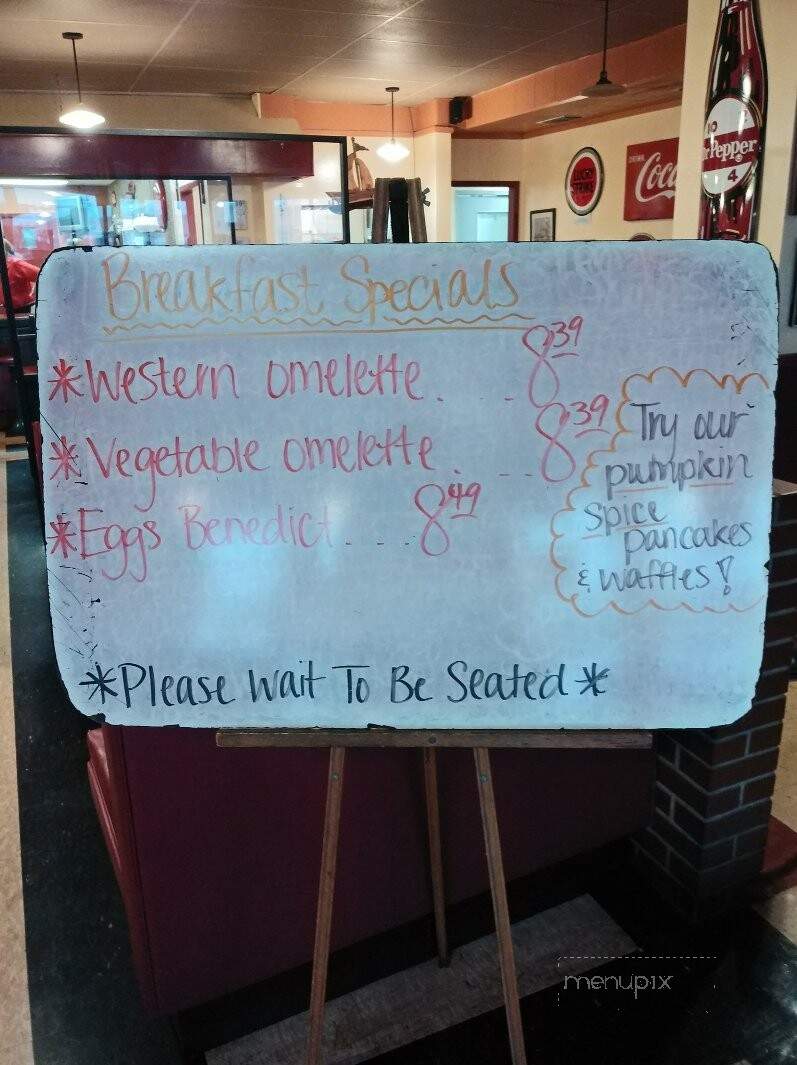 Breakfast Specials
*Western omelette. . . 8 39
*Vegetable omelette . . . 8 39
*Eggs Benedict . . . . 8 49
Try our
pumpkin
spice
pancakes
& waffles!
*Please Wait To Be Seated*
LUCKY
STRIKE
DRINK
Coca
10
Dr Pepper
4
menupix